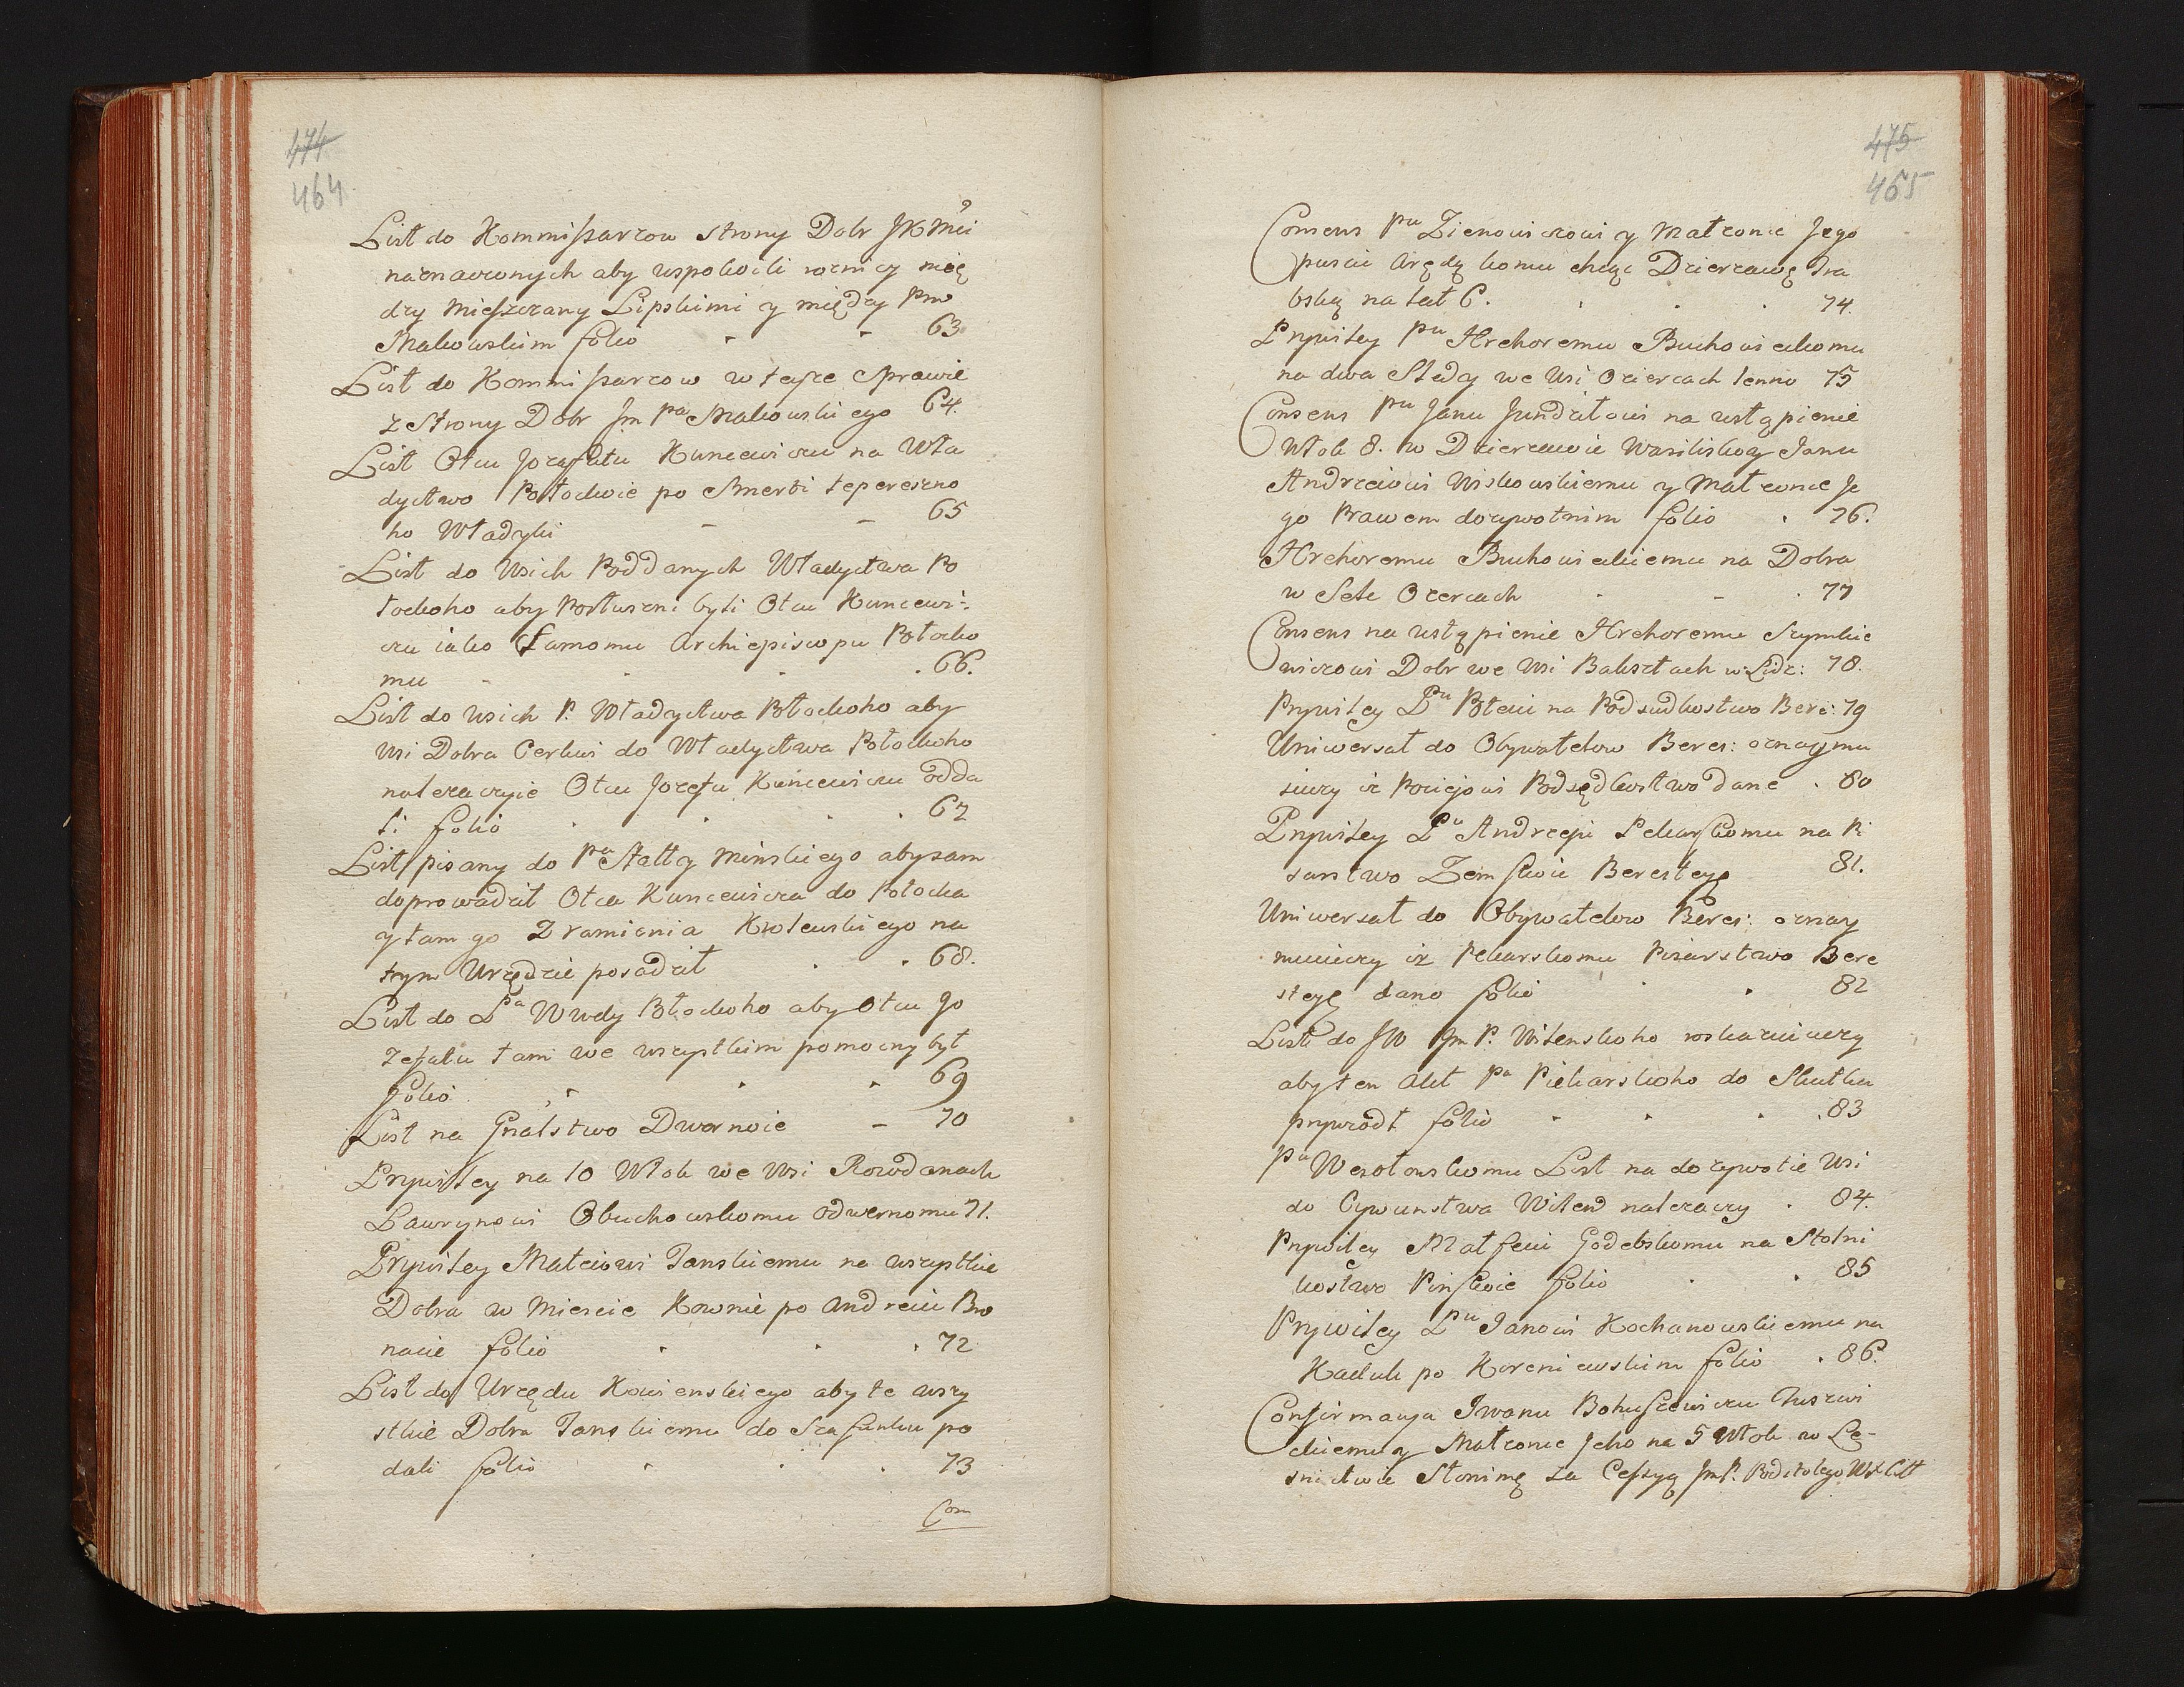 474
464
List do Kommissarzow strony Dobr JKMći
naznaczonych aby uspokoili roznicy mię
dzy Mieszczany Lipskimi y między Pnō
Makowskim folio 63
List do Kommissarzow w teyze Sprawie
z Strony Dobr Jm Pa Makowskiego 64.
List Otcu Jozafatu Kuncewiczu na Wła
dyctwo Połockoie po Smerti tepereszno
ho Władyki 65
List do Wsich Poddanych Władyctwa Po
łockoho aby Posłuszni byli Otcu Kuncewi-
czu iako samomu Archiepiscopu Połocko
mu 66.
List do Wsich P. Władyctwa Połockoho aby
Wsi Dobra Cerkwi do Władyctwa Połockoho
należaczyie Otcu Jozefu Kuncewiczu odda
li folio 67
List pisany do Pa Stattą Minskiego aby sam
doprowadził Otca Kuncewicza do Połocka
y tam go Z ramienia Krolewskiego na
tym Urzędzie posadził 68.
List do Pa Wwdy Połockoho aby Otcu Jo
zefatu tam we wszystkim pomocny był
folio 69
List na Gnalstwo Dwornoie 70
Prywiley na 10 Włok we Wsi Rowdanach
Ławrynowi Obuchowskomu odwernomu 71.
Prywiley Mateiowi Janskiemu na wszystkie
Dobra w Miescie Kownie po Andrzeiu Bro
nacie folio 72
List do Urzędu Kowienskiego aby te wszy
stkie Dobra Janskiemu do Szafunku po
dali folio 73
Con
475
465
Consens Pu Zienowiczowi y Małzonce Jego
puscic Arędą komu chcąc Dzierzawę Tra
bską na Lat 6. 74.
Prywiley Pu Hrehoremu Buchowieckomu
na dwa Sledy we Wsi Oziercach lenno 75
Consens Pu Janu Jundziłowi na ustąpienie
Włok 8. w Dzierzawie Wasiliskoy Janu
Andrzeiowi Wiskowskiemu y Małzonce Je
go Prawem dozywotnim folio 76.
Hrehoremu Buchowieckiemu na Dobra
w Sele Ozercach 77
Consens na ustąpienie Hrehoremu Szymkie
wiczowi Dobr we Wsi Baksztach w Lidz: 78.
Prywiley Pu Poteiu na Podsudkostwo Bere: 79
Uniwersał do Obywatelow Beres: oznaymu
iuczy iz Pociejowi Podsędkostwo dane 80
Prywiley Pu Andrzeju Pekarskomu na Pi
sarstwo Zemskoie Beresteyę 81.
Uniwersał do Obywatelow Beres: oznay
muiuczy iz Pekarskomu Pisarstwo Bere
steyę dano folio 82
List do JW Jm P. Wilenskoho roskazuiuczy
aby ten Akt Pa Piekarskoho do Skutku
prywodł folio 83
Pu Wesołowskomu List na dozywotie Wsi
do Cywunstwa Wilenō nalezaczy 84.
Prywiley Matfeiu Godebskomu na Stolni
kostwo Pinskoie folio 85
Prywiley Pu Janowi Kochanowskiemu na
Kaduk po Koreniewskim folio 86.
Confirmacya Iwanu Bohuszewiczu
ckiemu y Małzonce Jeho na 5 Włok w Le-
snictwie Słonimę za Cessyą Jm P. Podstolego WXLitt